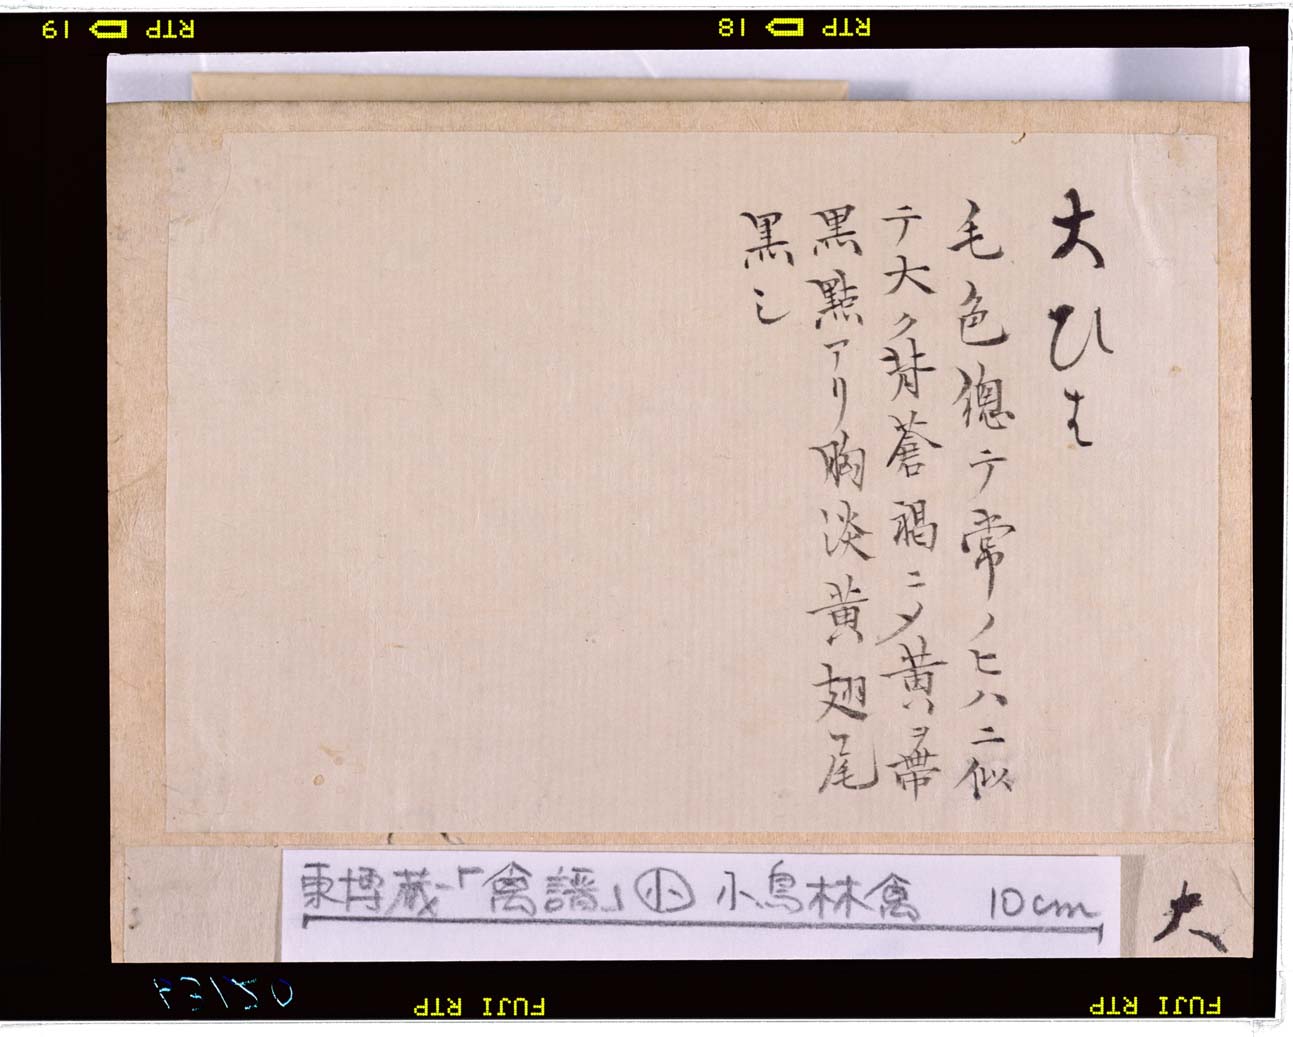 RTP 19
RTP 18
大ひは
毛色總テ常ノヒハニ似
テ大ク背蒼褐ニメ黄ハヲ帯
黒點アリ胸淡黄翅尾
黒シ
東博蔵-「禽譜」小上 小鳥林禽 10cm
大
FUJI RTP
FUJI RTP